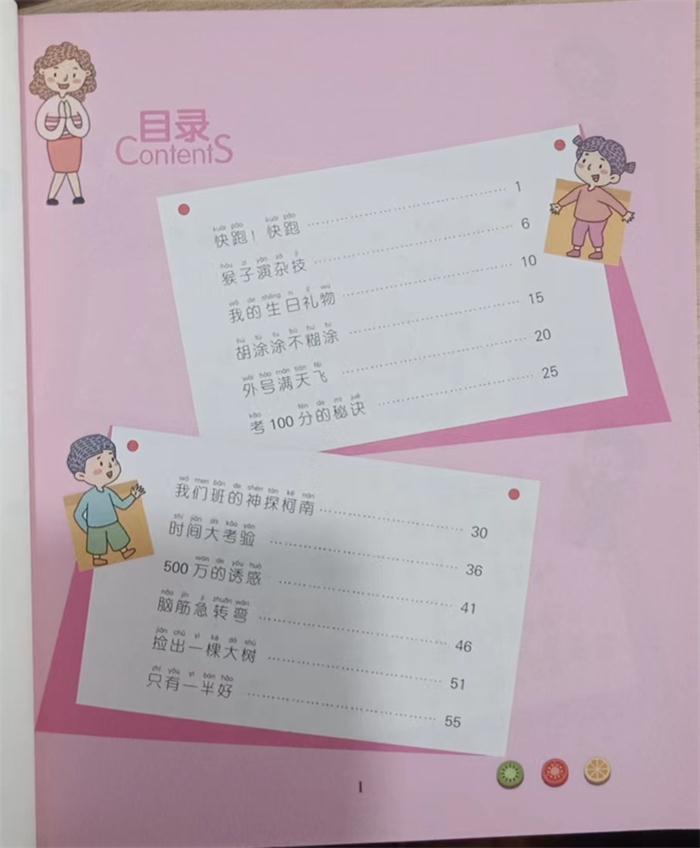 目录
ContentS
kuài pǎo kuài pǎo
快跑！快跑 …… 1
hóu zi yǎn zá jì
猴子演杂技 …… 6
wǒ de shēng rì lǐ wù
我的生日礼物 …… 10
hú tú tú bù hú tu
胡涂涂不糊涂 …… 15
wài hào mǎn tiān fēi
外号满天飞 …… 20
kǎo fēn de mì jué
考100分的秘诀 …… 25
wǒ men bān de shén tàn kē nán
我们班的神探柯南 …… 30
shí jiān dà kǎo yàn
时间大考验 …… 36
wàn de yòu huò
500万的诱惑 …… 41
nǎo jīn jí zhuǎn wān
脑筋急转弯 …… 46
jiǎn chū yì kē dà shù
捡出一棵大树 …… 51
zhǐ yǒu yí bàn hǎo
只有一半好 …… 55
1